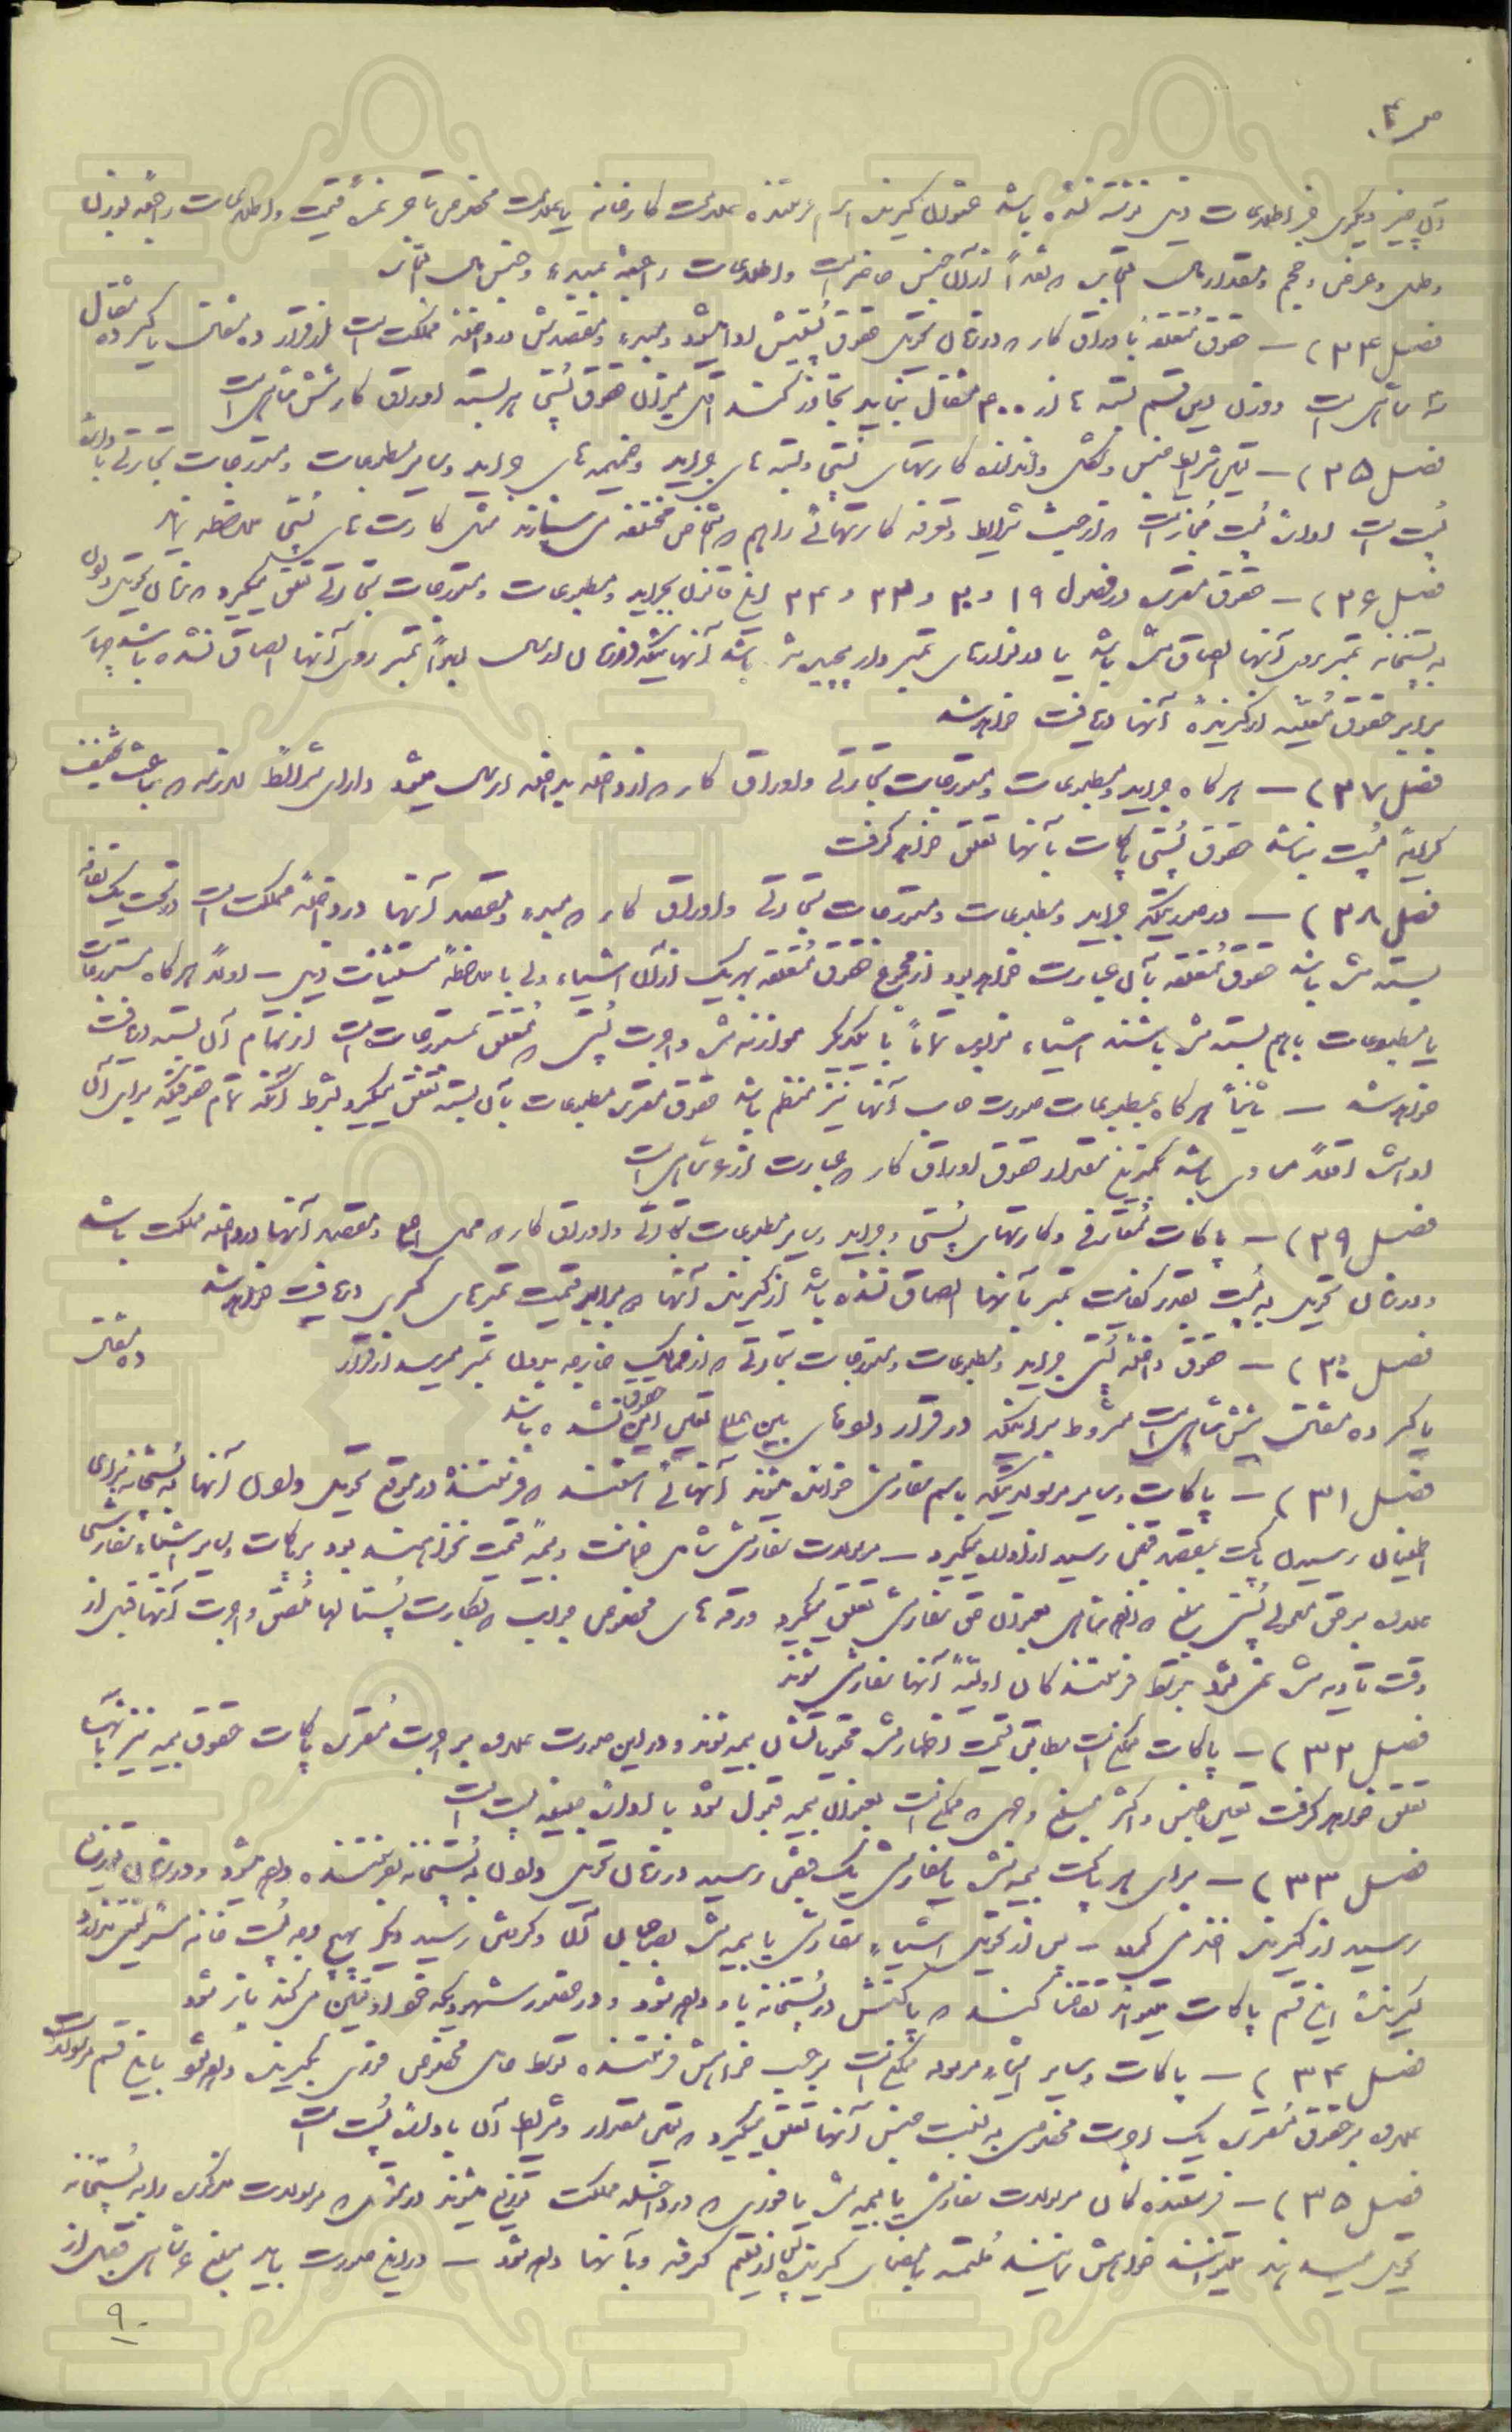 ص ۴
آن چیز دیگری جز اطلاعات ذیل نوشته نشده باشد عنوان گیرنده اسم فرستنده علامت کارخانه یا علامت مخصوص تاجر نمره قیمت و اطلاعات راجعه بوزن
و طول و عرض و حجم و مقدار مال التجاره که نقداً از آن جنس حاضر است و اطلاعات راجعه بمبدء و جنس مال التجاره
فصل ۲۴) ـ حقوق متعلقه باوراق کار که در زمان تحویل حقوق پستیش ادا میشود و مبدء و مقصدش در داخله مملکت است از قرار ده مثقال یا کسر ده مثقال
سه شاهی است و وزن این قسم بسته ها از ۴۰۰ مثقال نباید تجاوز کند اقل میزان حقوق پستی هر بسته اوراق کار شش شاهی است
فصل ۲۵) ـ تعیین شرایط جنس و شکل و اندازه کارتهای پستی و بسته های جراید و ضمیمه های جراید و سایر مطبوعات و مستورجات تجارتی با اداره
پست است اداره پست مجاز است که از حیث شرایط و تعرفه کارتهائی را هم که اشخاص مختلفه می سازند مثل کارت های پستی ملاحظه نماید
فصل ۲۶) ـ حقوق مقرره در فصول ۱۹ و ۲۰ و ۲۳ و ۲۴ این قانون بجراید و مطبوعات و مستورجات تجارتی تعلق میگیرد که زمان تحویل دادن
به پستخانه تمبر بروی آنها الصاق شده باشد یا در نوارهای تمبر دار پیچیده شده باشد آنهائیکه در زمان ارسال ابداً تمبر روی آنها الصاق نشده باشد چهار
برابر حقوق معینه از گیرنده آنها دریافت خواهد شد
فصل ۲۷) ـ هرگاه جراید و مطبوعات و مستورجات تجارتی و اوراق کار که از داخله بداخله ارسال میشود دارای شرائط لازمه که باعث تخفیف
کرایه پست نباشد حقوق پستی پاکات بآنها تعلق خواهد گرفت
فصل ۲۸) ـ در صورتیکه جراید و مطبوعات و مستورجات تجارتی و اوراق کار که مبدء و مقصد آنها در داخله مملکت است در تحت یک لفافه
بسته شده باشد حقوق متعلقه بآن عبارت خواهد بود از مجموع حقوق متعلقه بهریک از آن اشیاء ولی با ملاحظه مستثنیات ذیل ـ اولاً هرگاه مستورجات
یا مطبوعات باهم بسته شده باشند اشیاء مزبوره تماماً با یکدیگر موازنه شده و اجرت پستی که متعلق بمستورجات است از تمام آن بسته دریافت
خواهد شد ـ ثانیاً هرگاه بمطبوعات صورت حساب آنها نیز منضم باشد حقوق مقرره مطبوعات بآن بسته تعلق میگیرد بشرط آنکه تمام حقوقیکه برای آن
ادا شده اقلاً مساوی باشد بکمترین مقدار حقوق اوراق کار که عبارت از ۶ شاهی است
فصل ۲۹) ـ پاکات متعارفی و کارتهای پستی و جراید و سایر مطبوعات تجارتی و اوراق کار که محل و مقصد آنها در داخله مملکت باشد
و در زمان تحویل به پست بقدر کفایت تمبر بآنها الصاق نشده باشد از گیرنده آنها دو برابر قیمت تمبرهای کسری دریافت خواهد شد
فصل ۳۰) ـ حقوق داخله پستی جراید و مطبوعات و مستورجات تجارتی که از ممالک خارجه بدون تمبر میرسد از قرار ده مثقال
یا کسر ده مثقال شش شاهی است مشروط براینکه در قرار دادهای بین المللی تعیین این حقوق نشده باشد
فصل ۳۱) ـ پاکات و سایر مرسولاتیکه باسم سفارشی خوانده میشوند آنهائی هستند که فرستنده در موقع تحویل دادن آنها به پستخانه برای
اطمینان رسیدن پاکت بمقصد قبض رسید از اداره میگیرد ـ مرسولات سفارشی شامل ضمانت و بیمه قیمت نخواهند بود بپاکات و سایر اشیاء سفارشی
علاوه بر حق معمولی پستی مبلغ شاهی بعنوان حق سفارشی تعلق میگیرد ورقه های مخصوص جواب که بکارت پستالها ملصق و اجرت آنها قبل از
وقت تأدیه شده نمیشود توسط فرستندگان اولیه آنها سفارشی شوند
فصل ۳۲) ـ پاکات ممکن است مطابق قیمت اظهار شده محتویاتشان بیمه شوند و در این صورت علاوه بر اجرت مقرره پاکات حقوق بیمه نیز بآنها
تعلق خواهد گرفت تعیین جنس و اکثر مبلغ وجهی که ممکن است بعنوان بیمه قبول شود با اداره جلیله پست است
فصل ۳۳) ـ برای هر پاکت بیمه شده یا سفارشی یک قبض رسید در زمان تحویل دادن به پستخانه بفرستنده داده میشود و در زمان توزیع
رسید از گیرنده اخذ می گردد ـ پس از تحویل اشیاء سفارشی یا بیمه شده بصاحبان آن و گرفتن رسید دیگر بهیچ وجه پستخانه مسئولیتی ندارد
گیرنده این قسم پاکات میتواند تقاضا کند که پاکتش در پستخانه باو داده شود و در حضور شهودیکه خود او تعیین می کند باز شود
فصل ۳۴) ـ پاکات و سایر اشیاء مرسوله ممکن است برحسب خواهش فرستنده توسط حامل مخصوص فوری بگیرنده داده شود باین قسم مرسولات
علاوه بر حقوق مقرره یک اجرت مخصوصی به نسبت جنس آنها تعلق میگیرد که تعیین مقدار و شرایط آن با اداره پست است
فصل ۳۵) ـ فرستنده گان مرسولات سفارشی یا بیمه شده یا فوری که در داخله مملکت توزیع میشوند در موقعی که مرسولات مذکوره را به پستخانه
تحویل میدهند میتوانند خواهش نمایند علمی بامضای گیرنده از تسلیم گرفته و بآنها داده شود ـ در این صورت باید مبلغ ۶ شاهی قبل از
۹۰